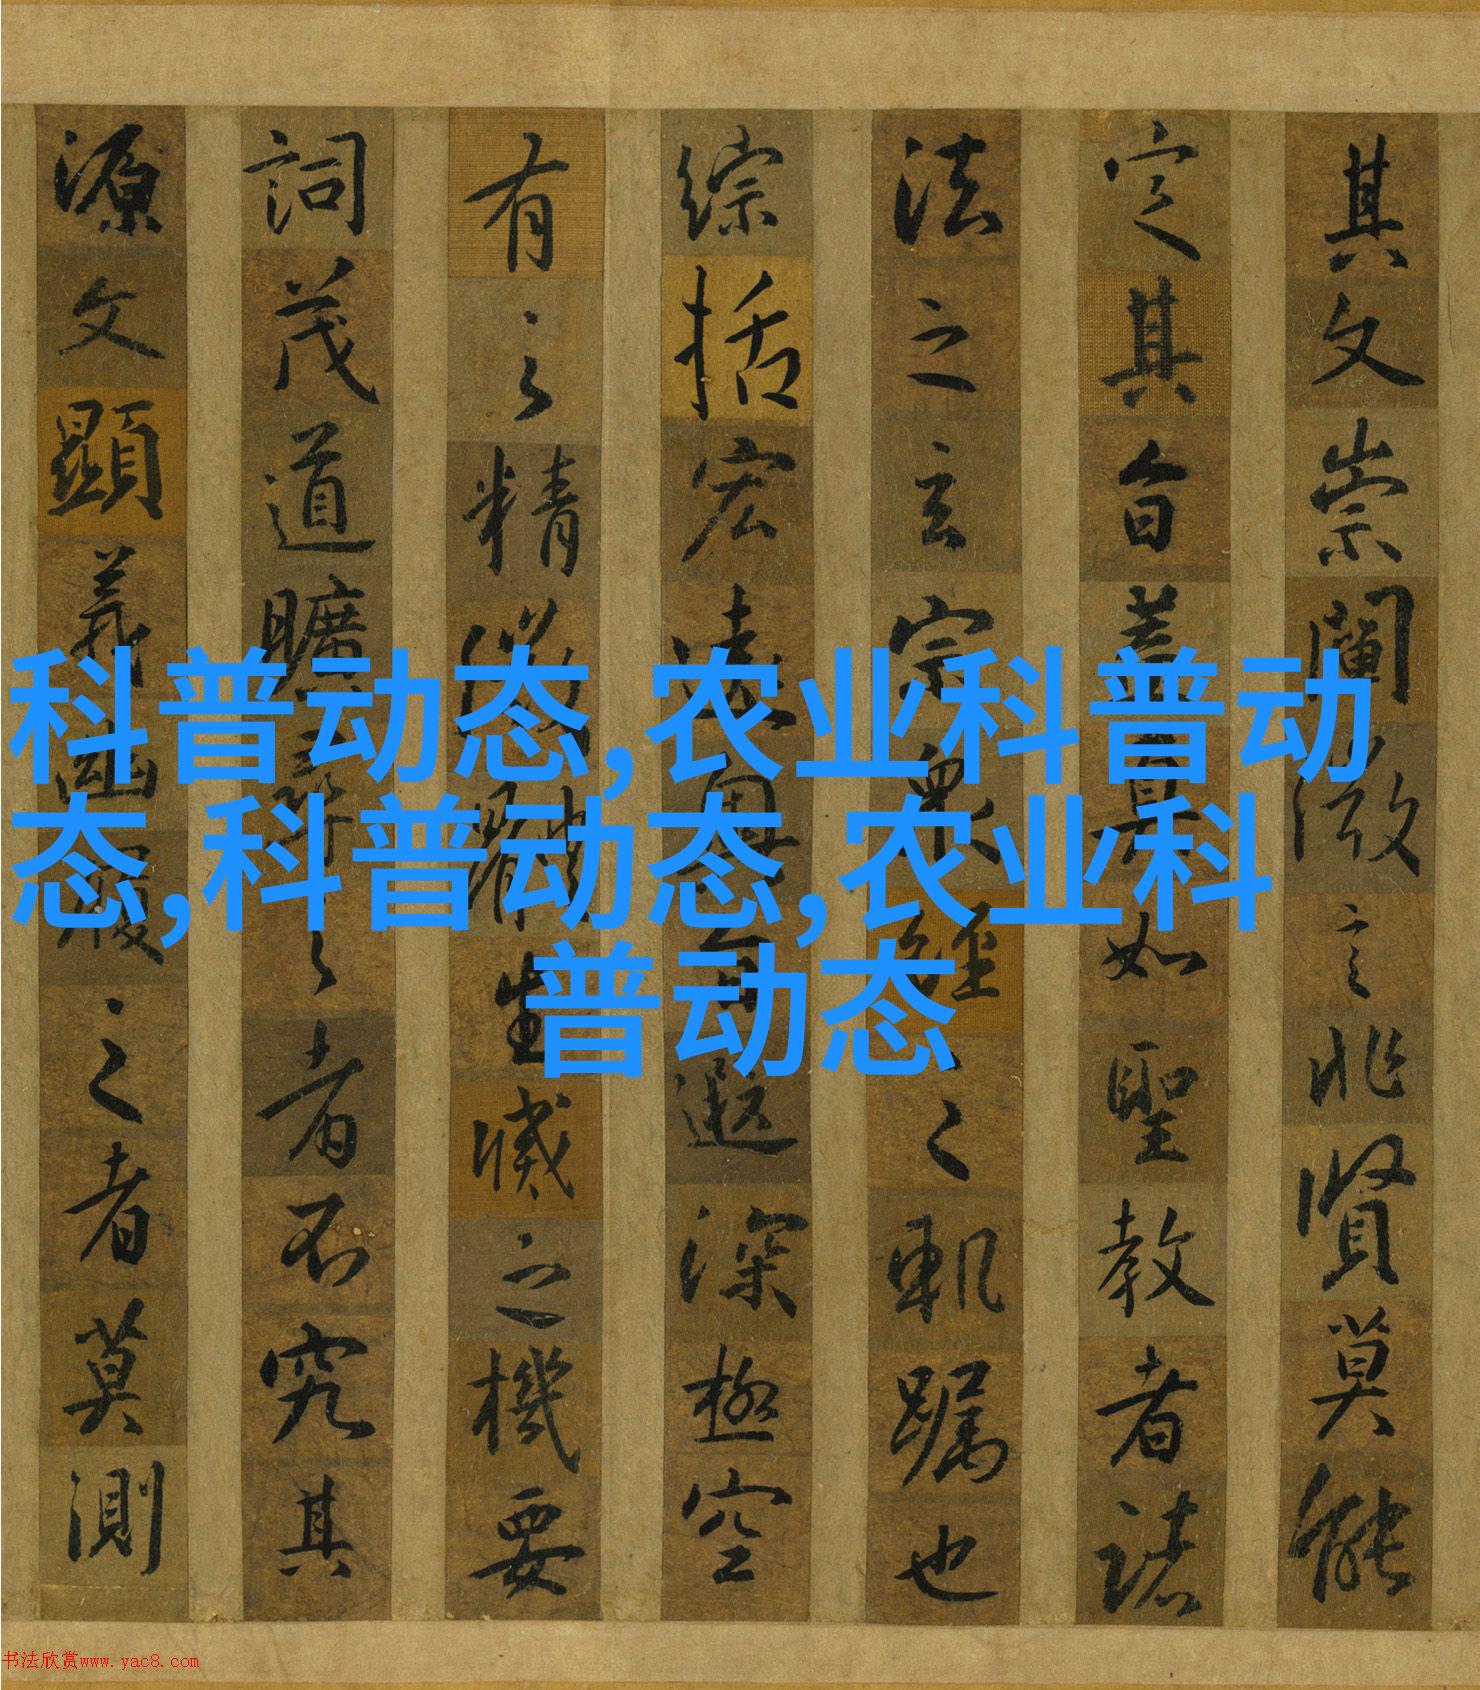 其文崇闡微言非賢莫能
定其旨蓋真如聖教者諸
法之玄宗衆經之軌躅也
綜括宏遠奧旨遐深極空
有之精微體生滅之機要
詞茂道曠尋之者不究其
源文顯義幽履之者莫測
科普动态,农业科普动
态,科普动态,农业科
普动态
书法欣赏www.yac8.com